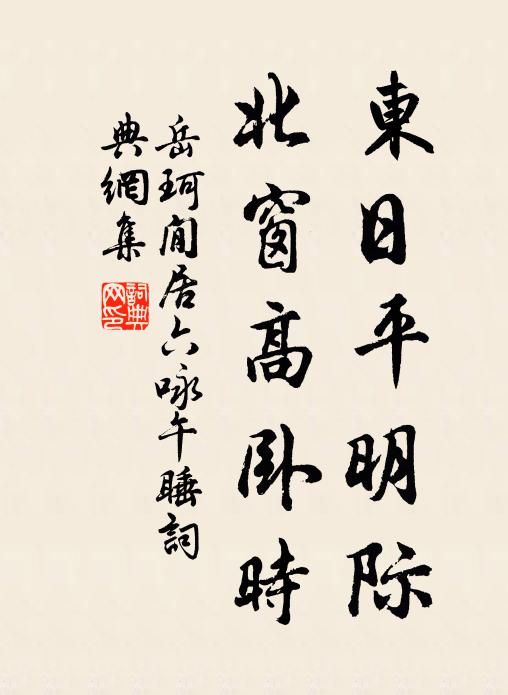 東日平明际
北窗高卧時
岳珂閒居六咏午睡詞
典網集
詞典
网印